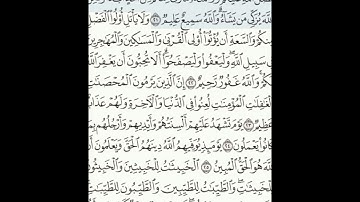 ٱللَّهَ يُزَكِّى مَن يَشَآءُ وَٱللَّهُ سَمِيعٌ عَلِيمٌ ٢١ وَلَا يَأْتَلِ أُو۟لُوا۟ ٱلْفَضْلِ
مِنكُمْ وَٱلسَّعَةِ أَن يُؤْتُوٓا۟ أُو۟لِى ٱلْقُرْبَىٰ وَٱلْمَسَٰكِينَ وَٱلْمُهَٰجِرِينَ
فِى سَبِيلِ ٱللَّهِ وَلْيَعْفُوا۟ وَلْيَصْفَحُوٓا۟ أَلَا تُحِبُّونَ أَن يَغْفِرَ ٱللَّهُ
لَكُمْ وَٱللَّهُ غَفُورٌ رَّحِيمٌ ٢٢ إِنَّ ٱلَّذِينَ يَرْمُونَ ٱلْمُحْصَنَٰتِ
ٱلْغَٰفِلَٰتِ ٱلْمُؤْمِنَٰتِ لُعِنُوا۟ فِى ٱلدُّنْيَا وَٱلْءَاخِرَةِ وَلَهُمْ عَذَابٌ
عَظِيمٌ ٢٣ يَوْمَ تَشْهَدُ عَلَيْهِمْ أَلْسِنَتُهُمْ وَأَيْدِيهِمْ وَأَرْجُلُهُم بِمَا
كَانُوا۟ يَعْمَلُونَ ٢٤ يَوْمَئِذٍ يُوَفِّيهِمُ ٱللَّهُ دِينَهُمُ ٱلْحَقَّ وَيَعْلَمُونَ أَنَّ
ٱللَّهَ هُوَ ٱلْحَقُّ ٱلْمُبِينُ ٢٥ ٱلْخَبِيثَٰتُ لِلْخَبِيثِينَ وَٱلْخَبِيثُونَ
لِلْخَبِيثَٰتِ وَٱلطَّيِّبَٰتُ لِلطَّيِّبِينَ وَٱلطَّيِّبُونَ لِلطَّيِّبَٰتِ